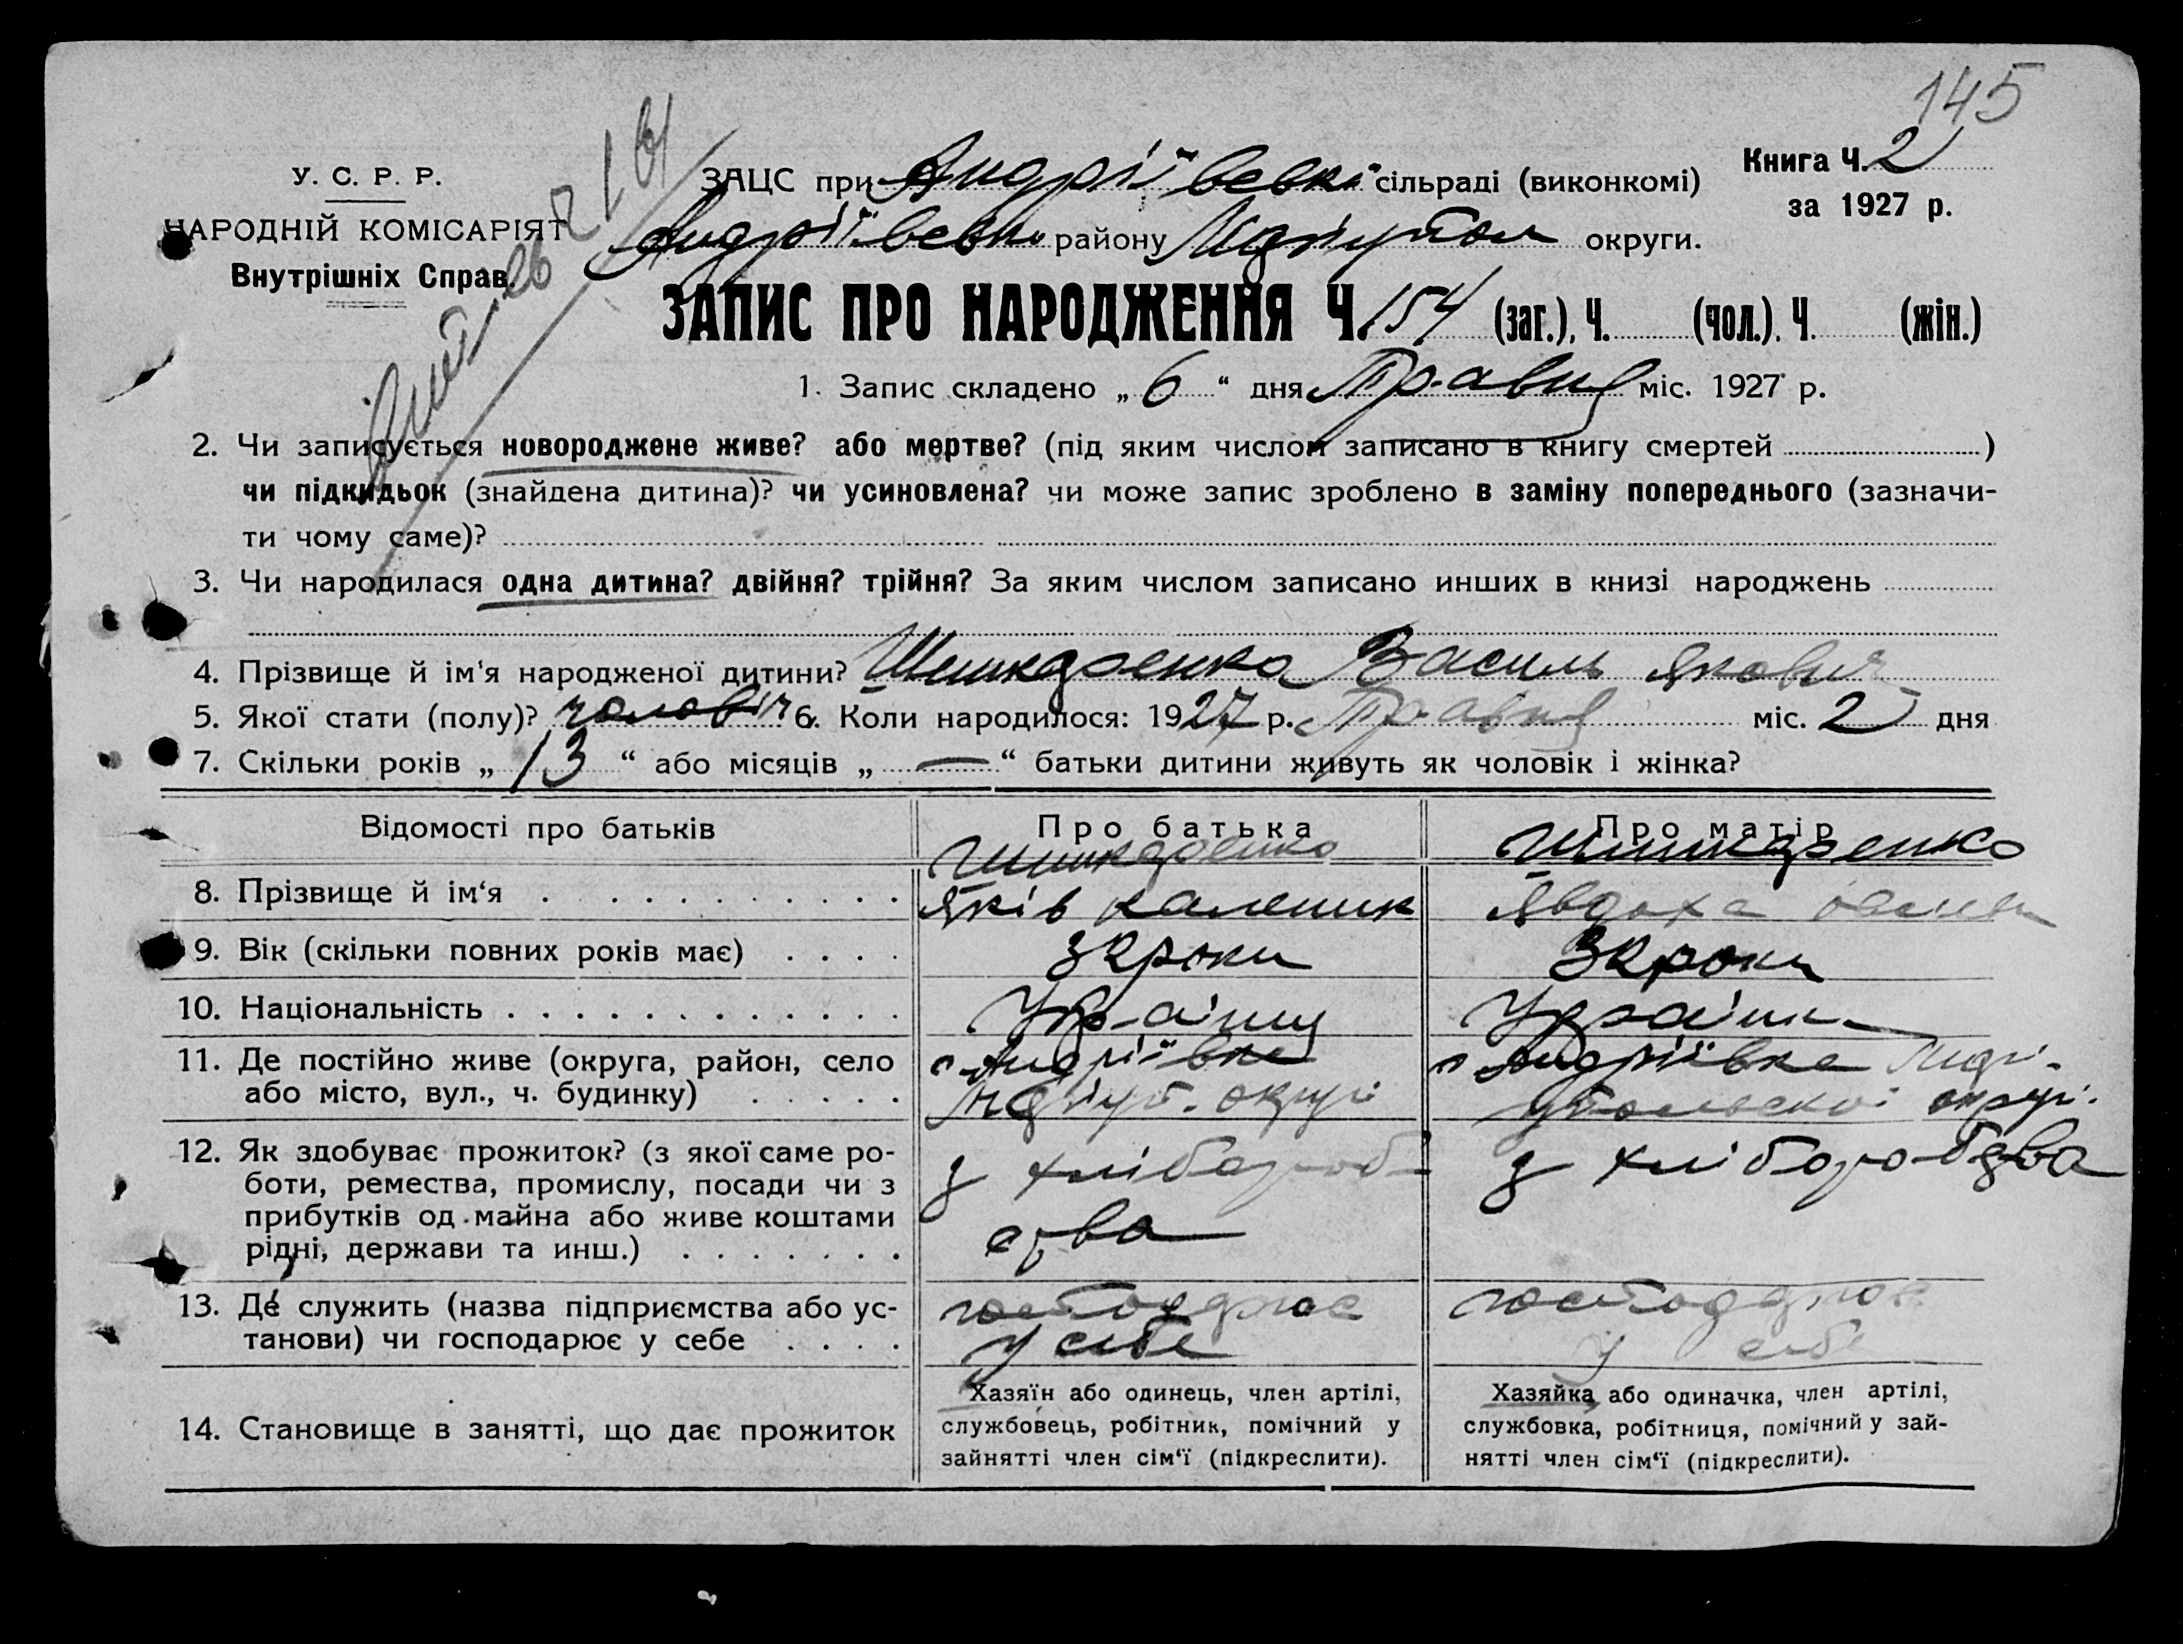 145
У. С. Р. Р.
НАРОДНІЙ КОМІСАРІЯТ
Внутрішніх Справ.
ЗАЦС при Андріївські сільраді (виконкомі)
Книга Ч. 2
за 1927 р.
Андріївськ району округи.
ЗАПИС ПРО НАРОДЖЕННЯ Ч. 154 (заг.), Ч. (чол.), Ч. (жін.)
1. Запис складено „ 6 “ дня Травня міс. 1927 р.
2. Чи записується новороджене живе? або мертве? (під яким числом записано в книгу смертей )
чи підкидьок (знайдена дитина)? чи усиновлена? чи може запис зроблено в заміну попереднього (зазначи-
ти чому саме)?
3. Чи народилася одна дитина? двійня? трійня? За яким числом записано инших в книзі народжень
4. Прізвище й ім'я народженої дитини? Василь Якович
5. Якої стати (полу)? чоловіч 6. Коли народилося: 1927 р. Травня міс. 2 дня
7. Скільки років „ 13 “ або місяців „ — “ батьки дитини живуть як чоловік і жінка?
Відомості про батьків
Про батька
Про матір
8. Прізвище й ім‘я
Яків каленик
Явдоха
9. Вік (скільки повних років має)
32 роки
32 роки
10. Національність
11. Де постійно живе (округа, район, село
або місто, вул., ч. будинку)
с Андріївка
округи
с Андріївка
округи.
12. Як здобуває прожиток? (з якої саме ро-
боти, ремества, промислу, посади чи з
прибутків од майна або живе коштами
рідні, держави та инш.)
з хлібороб
ства
з хліборобства
13. Де служить (назва підприємства або ус-
танови) чи господарює у себе
господарює
у себе
господарює
у себе
14. Становище в занятті, що дає прожиток
Хазяїн або одинець, член артілі,
службовець, робітник, помічний у
зайнятті член сім‘ї (підкреслити).
Хазяйка або одиначка, член артілі,
службовка, робітниця, помічний у зай-
нятті член сім‘ї (підкреслити).